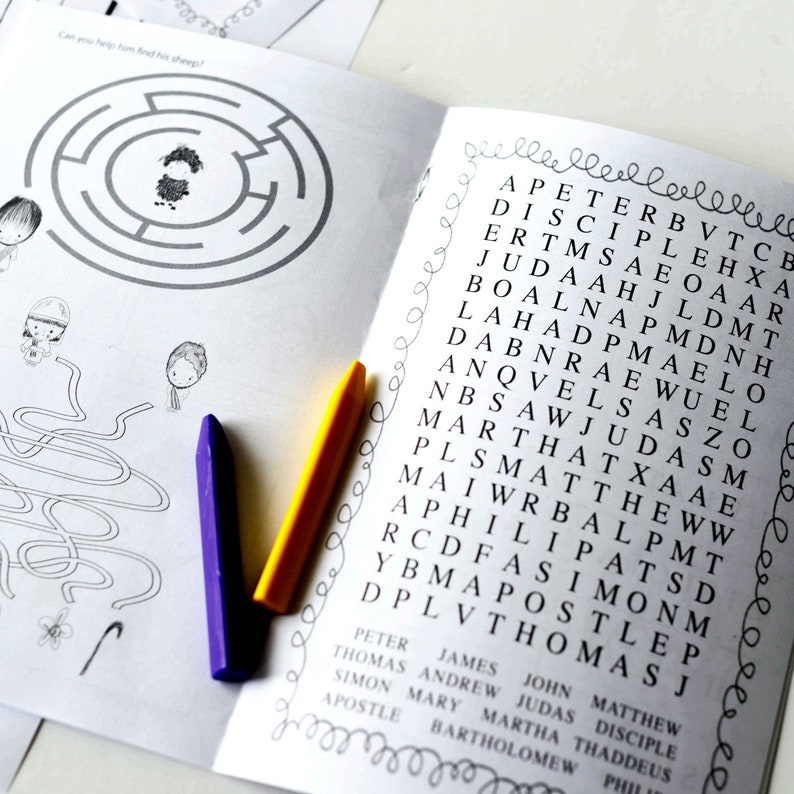 Can you help him find his sheep?
A P E T E R B V T C B
D I S C I P L E H X A
E R T M S A E O A A R
J U D A A H J L D M T
B O A L N A P M D N H
L A H A D P M A E L O
D A B N R A E W U E L
A N Q V E L S A S Z O
N B S A W J U D A S M
M A R T H A T X A A E
P L S M A T T H E W W
M A I W R B A L P M T
A P H I L I P A T S D
R C D F A S I M O N M
Y B M A P O S T L E P
D P L V T H O M A S J
PETER JAMES JOHN MATTHEW
THOMAS ANDREW JUDAS DISCIPLE
SIMON MARY MARTHA THADDEUS
APOSTLE BARTHOLOMEW